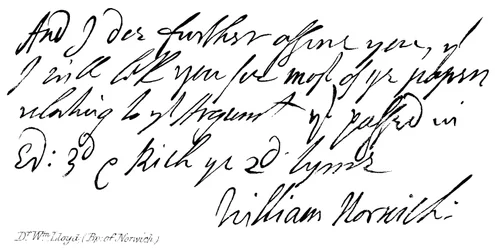 And I doe further assure you, yt
I will let you see most of ye papers
relating to yt Argument yt passed in
Ed: 3d & Rich ye 2d tyme
William Norwich:
Dr. Wm. Lloyd (Bp. of Norwich)